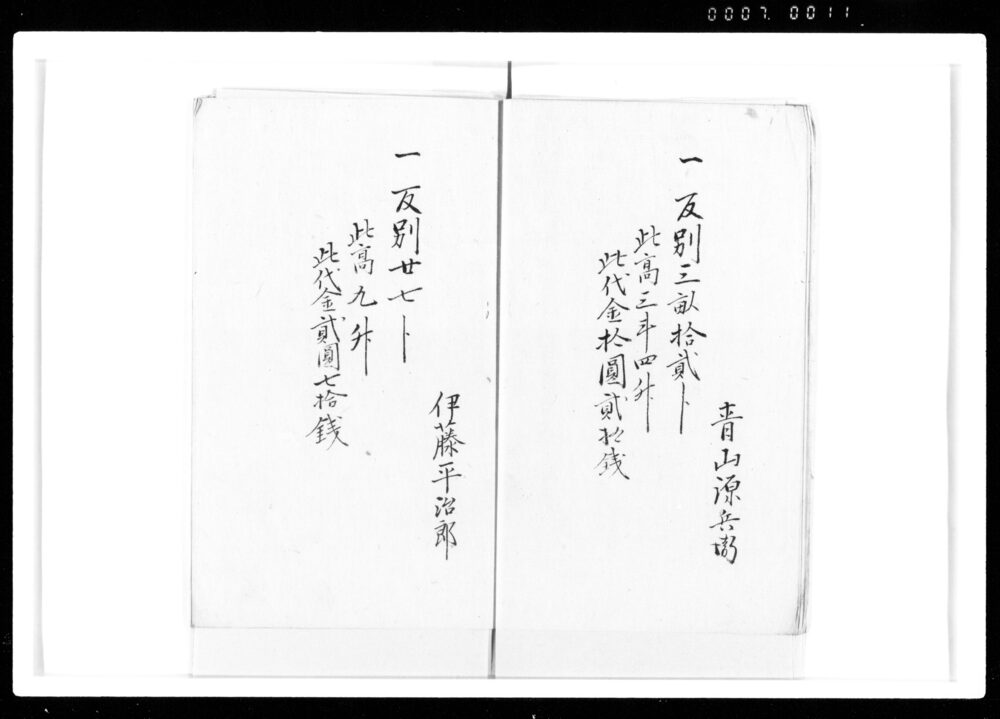 0007 0011
青山源兵衛
一反別三畝拾貳卜
此高三斗四升
此代金拾圓貳拾銭
伊藤平治郎
一反別廿七卜
此高九升
此代金貳圓七拾銭